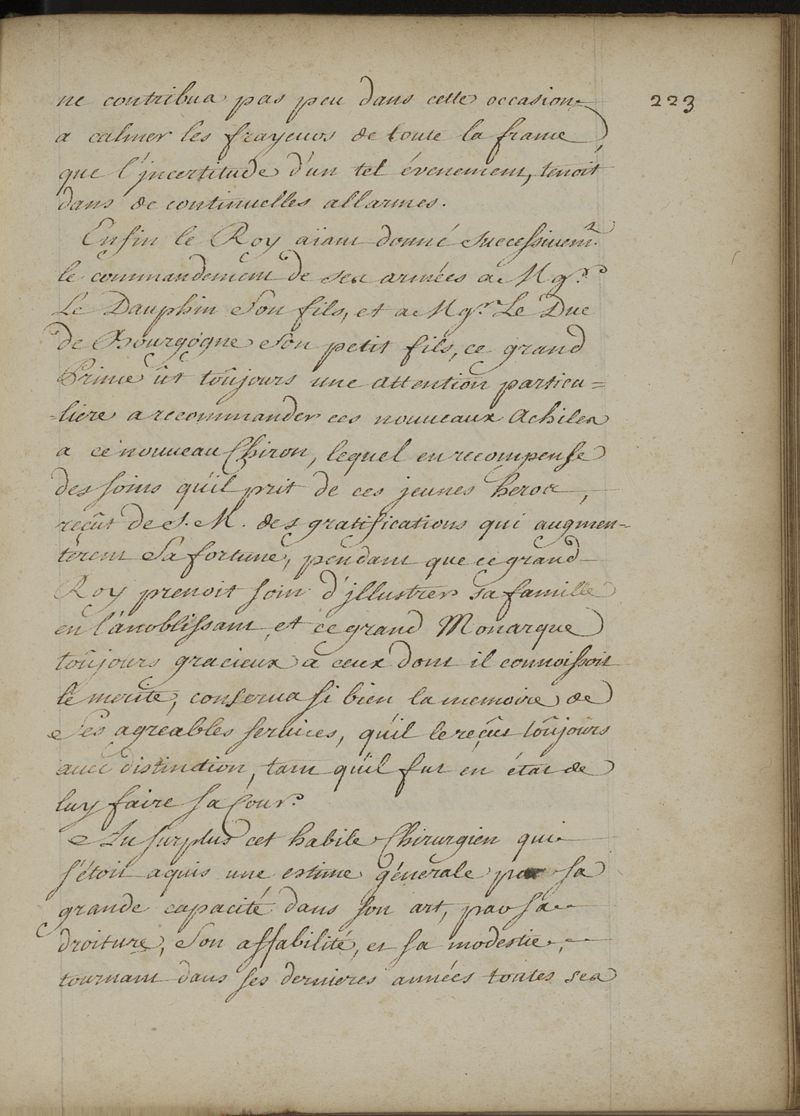 223
ne contribua pas peu dans cette occasion
a calmer les frayeurs de toute la france,
que l'jncertitude d'un tel évenement, tenoit
dans de continuelles allarmes.
Enfin le Roy aïant donné successivemt.
le commandement de ses armées a Mgr.
Le Dauphin son fils, et a Mgr. Le Duc
de Bourgogne son petit fils, ce grand
Prince ût toûjours une attention particu=
=liere a recommander ces nouveaux Achiles
a ce nouveau Chiron, lequel en recompense
des soins qu'il prit de ces jeunes heros,
reçût de S. M. des gratifications qui augmen=
térent sa fortune, pendant que ce grand
Roy prenoit soin d'jllustrer sa famille
en l'anoblissant, et ce grand Monarque
toûjours gracieux a ceux dont il connoissoit
le merite, conserva si bien la memoire de
ses agreables services, qu'il le reçut toûjours
avec distinction, tant qu'il fut en état de
luy faire sa Cour.
Au surplus cet habile Chirurgien qui
s'étoit aquis une estime génerale par sa
grande capacité dans son art, par sa
droiture, son affabilité, et sa modestie,
tournant dans ses dernieres années toutes ses